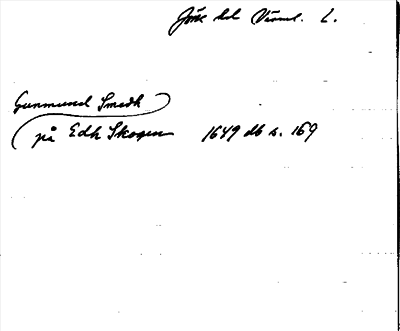 Jöse hd Värml. L.
Gunmund Smedh
på Edh Skogen 1649 db s. 169